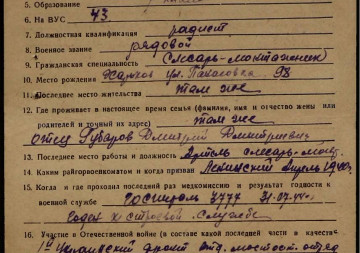 5. Образование
6. На ВУС 43
7. Должностная квалификация радист
8. Военное звание рядовой
9. Гражданская специальность (слесарь-монтажник)
10. Место рождения Харьков ул. 98
11. Последнее место жительства там же
12. Где проживает в настоящее время семья (фамилия, имя и отчество жены или
родителей и точный их адрес) там же
отец Губарев Дмитрий Дмитриевич
13. Последнее место работы и должность Артель слесарь-монт.
14. Каким райгорвоенкоматом и когда призван Ленинский
15. Когда и где проходил последний раз медкомиссию и результат годности к
военной службе Госпиталь 3777 31.07.44г.
Годен к строевой службе
16. Участие в Отечественной войне (в составе какой последней части в качестве
1й Украинский фронт отд.